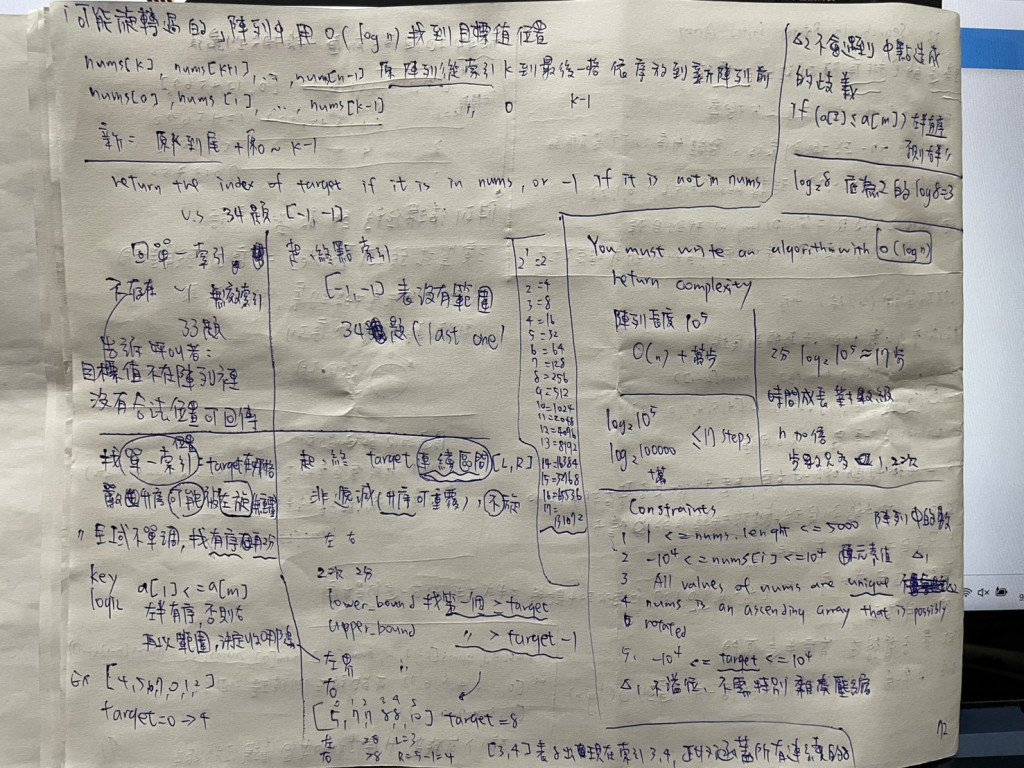 可能旋轉過的,陣列中用 O(log n) 找到目標值位置
nums[k], nums[k+1], ..., nums[n-1] 原陣列從索引 k 到最後一格 依序放到新陣列前
nums[0], nums[1], ..., nums[k-1] " 0 k-1
新 = 原k到尾 + 原0 ~ k-1
return the index of target if it is in nums, or -1 if it is not in nums
v.s 34題 [-1, -1]
回單一索引
不存在 -1 無效索引
33題
告訴呼叫者:
目標值不在陣列裡
沒有合法位置可回傳
起、終點索引
[-1, -1] 表沒有範圍
34題 (last one)
2^1 = 2
2 = 4
3 = 8
4 = 16
5 = 32
6 = 64
7 = 128
8 = 256
9 = 512
10 = 1024
11 = 2048
12 = 4096
13 = 8192
14 = 16384
15 = 32768
16 = 65536
17 =
131072
△2 不會遇到中點造成
的歧義
if (a[l] ≤ a[m]) 左半有序
log₂8 底為2的 log8=3
You must write an algorithm with O(log n)
return complexity
陣列長度 10^5
O(n) 十萬步
log₂10^5
log₂100000 ≤17 steps
十萬
25 log₂10^5 ≈ 17步
時間成長 對數級
n 加倍
步數只多 1, 2次
找單一索引 位置 = target在哪格
升序 可能 被旋轉
" 區域不單調, 找有序再二分
key
logic a[l] <= a[m]
左半有序, 否則右
再以範圍, 決定
Ex [4,5,6,7,0,1,2]
target=0 → 4
起、終 target 連續區間 [L,R]
非遞減 (升序可重覆), 不旋
左 右
2次 2分
lower_bound 找第一個 ≥ target
upper_bound " > target -1
左界 "
右
0 1 2 3 4 5
[5,7,7,8,8,10] target = 8
左 ≥8 L=3
右 >8 R=5-1=4
[3,4] 表8出現在索引3,4, 涵蓋所有連續的8
Constraints
1 1 <= nums.lenght <= 5000 陣列中的數
2 -10^4 <= nums[i] <= 10^4 元素值 △1
3 All values of nums are unique
4 nums is an ascending array that is possibly
rotated
5. -10^4 <= target <= 10^4
△1 不溢位、不需特別離散壓縮
72